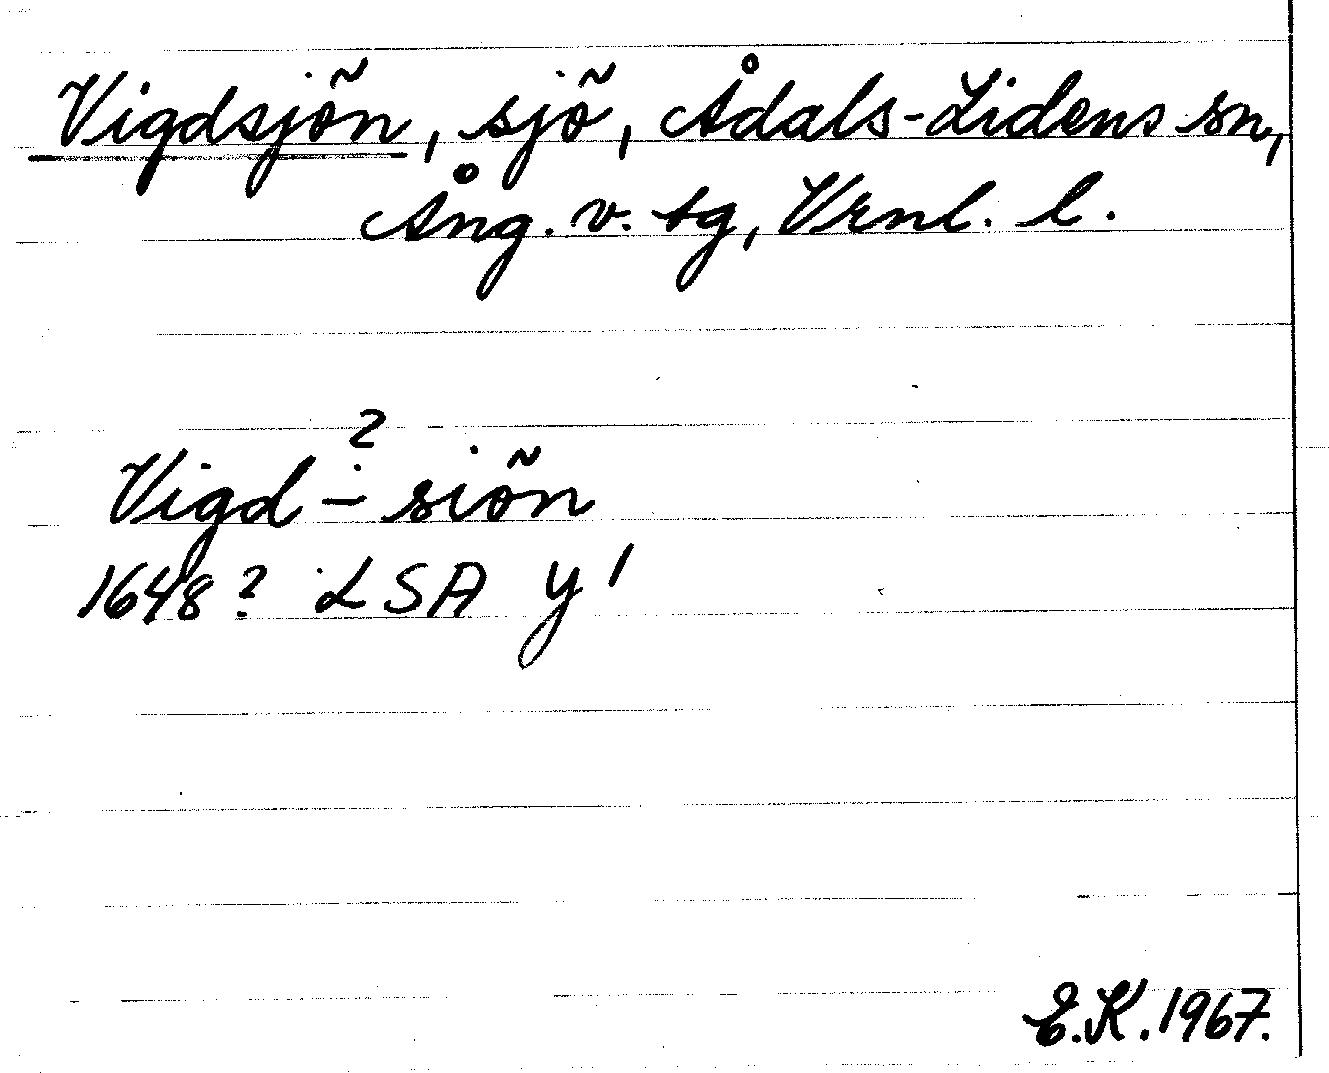 Vigdsjön, sjö, Ådals-Lidens sn,
Ång. v. tg, Vrnl. l.
?
Vigd-siön
1648? LSA Y 1
E.K. 1967.